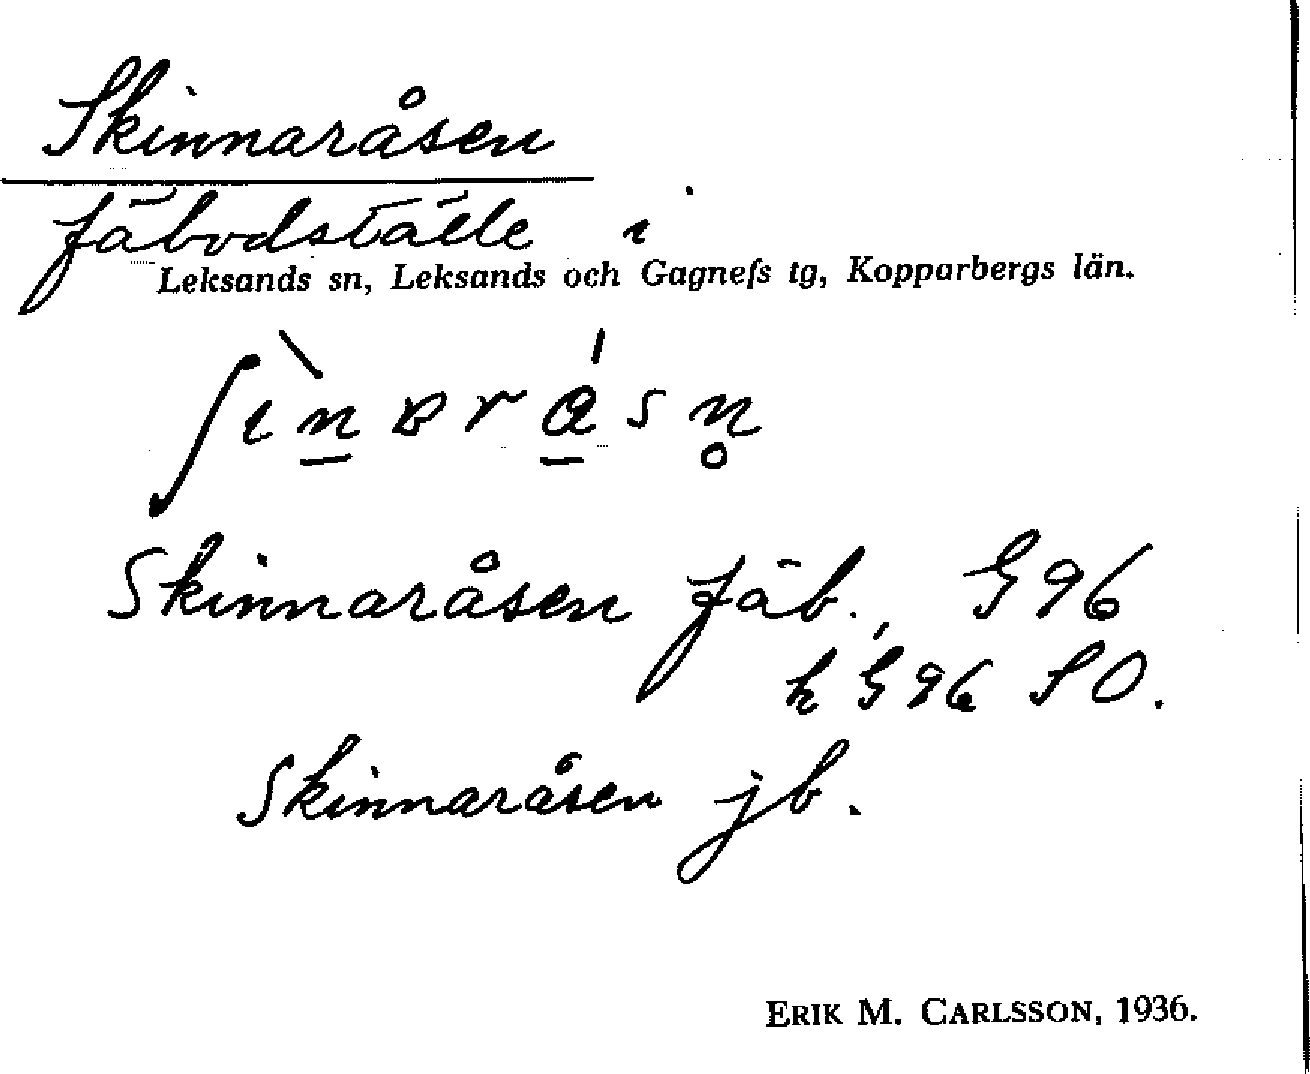 Skinnaråsen
fäbodställe i
Leksands sn, Leksands och Gagnefs tg, Kopparbergs län.
Skinnaråsen fäb., G 96
h G 96 SO.
Skinnaråsen jb.
ERIK M. CARLSSON, 1936.